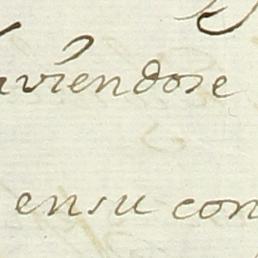 viendose
ensu con